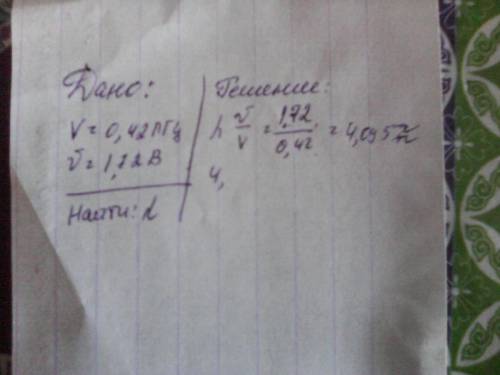 Дано:
ν = 0,42 ПГц
υ = 1,72 В
Найти: λ
Решение:
λ υ/ν = 1,72/0,42 = 4,095
4,